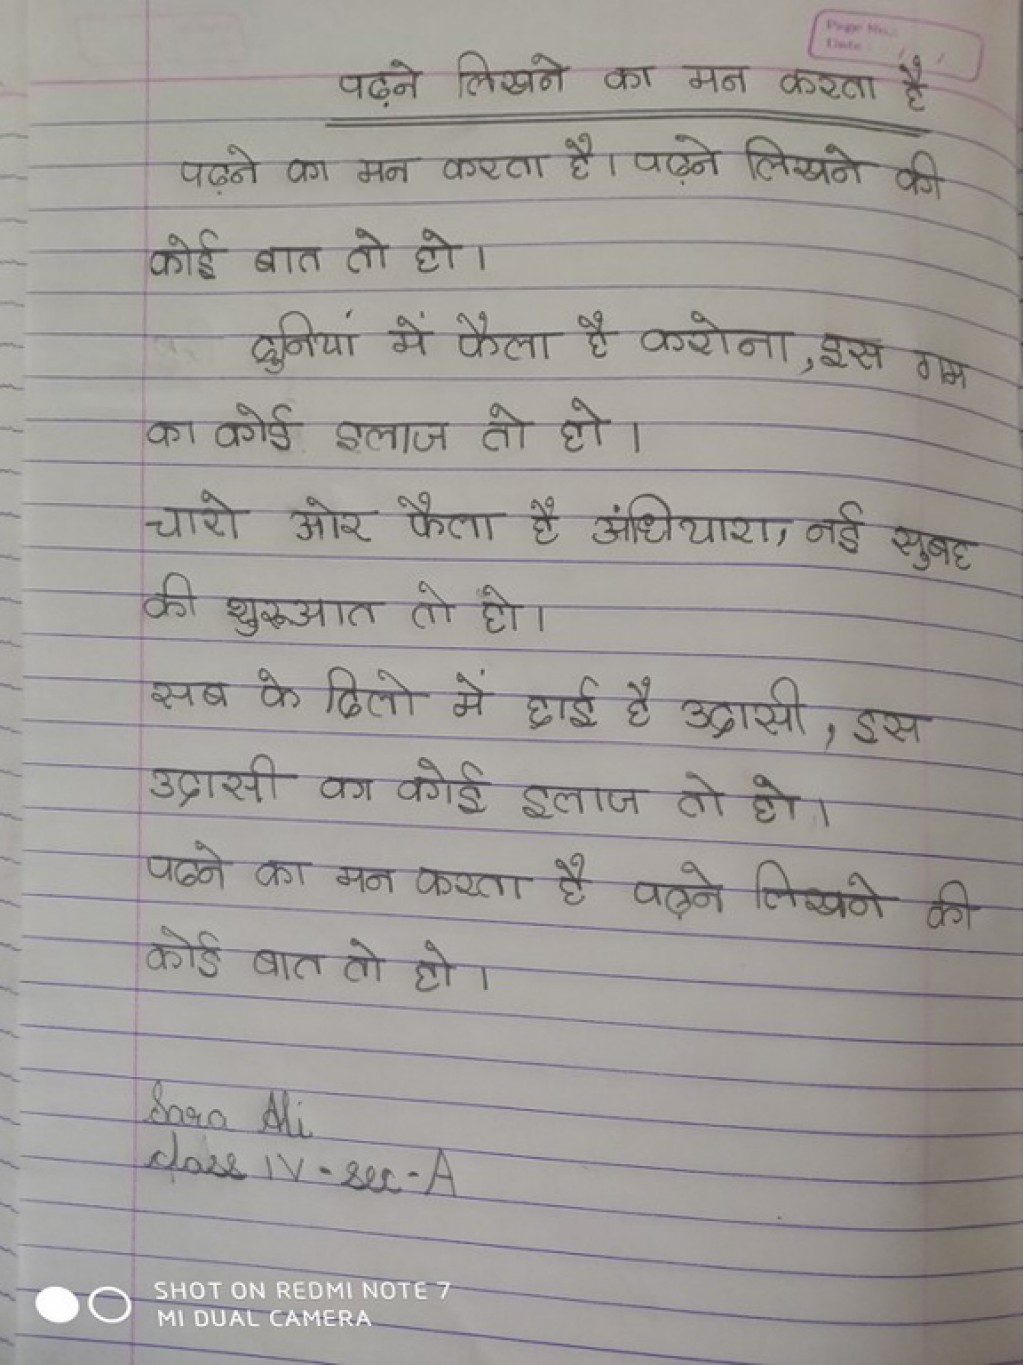 Page No.:
Date:
पढ़ने लिखने का मन करता है
पढ़ने का मन करता है। पढ़ने लिखने की
कोई बात तो हो।
दुनियां में फैला है करोना, इस गम
का कोई इलाज तो हो।
चारो ओर फैला है अंधियारा, नई सुबह
की शुरूआत तो हो।
सब के दिलो में छाई है उदासी, इस
उदासी का कोई इलाज तो हो।
पढने का मन करता है पढ़ने लिखने की
कोई बात तो हो।
Sara Ali
class IV-sec-A
SHOT ON REDMI NOTE 7
MI DUAL CAMERA